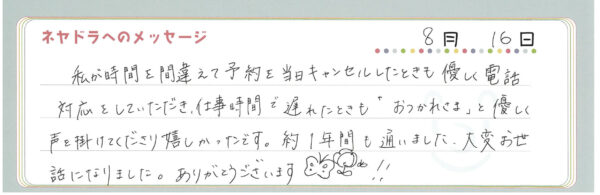 ネヤドラへのメッセージ
8月 16日
私が時間を間違えて予約を当日キャンセルしたときも優しく電話
対応をしていただき、仕事時間で遅れたときも“おつかれさま”と優しく
声を掛けてくださり嬉しかったです。約1年間も通いました。大変お世
話になりました。ありがとうございます!!